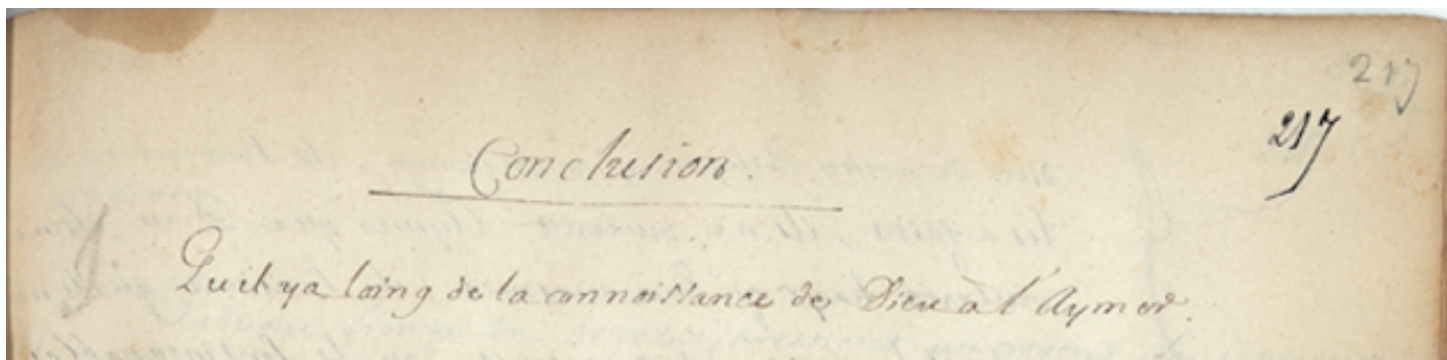 217
217
Conclusion.
Qu'il y a loing de la connoissance de Dieu à l'Aymer.